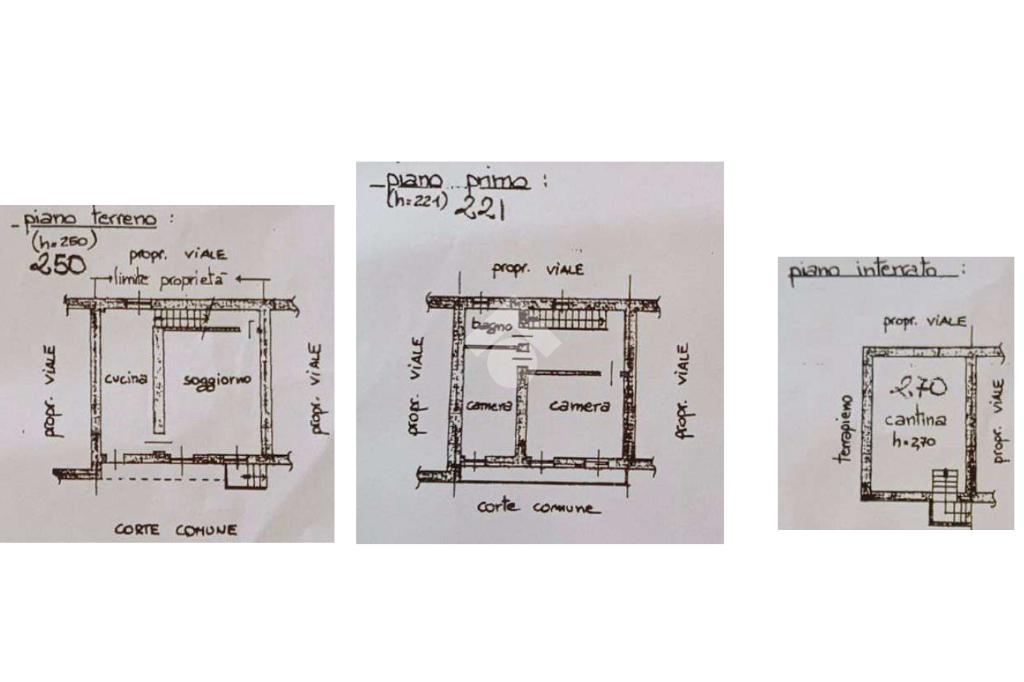 - piano terreno :
(h=250)
250
propr. VIALE
limite proprietà
propr. VIALE
cucina
soggiorno
propr. VIALE
CORTE COMUNE
- piano primo :
(h=221)
221
propr. VIALE
bagno
propr. VIALE
camera
camera
propr. VIALE
corte comune
piano interrato :
propr. VIALE
terrapieno
2.70
cantina
h=2,70
propr. VIALE